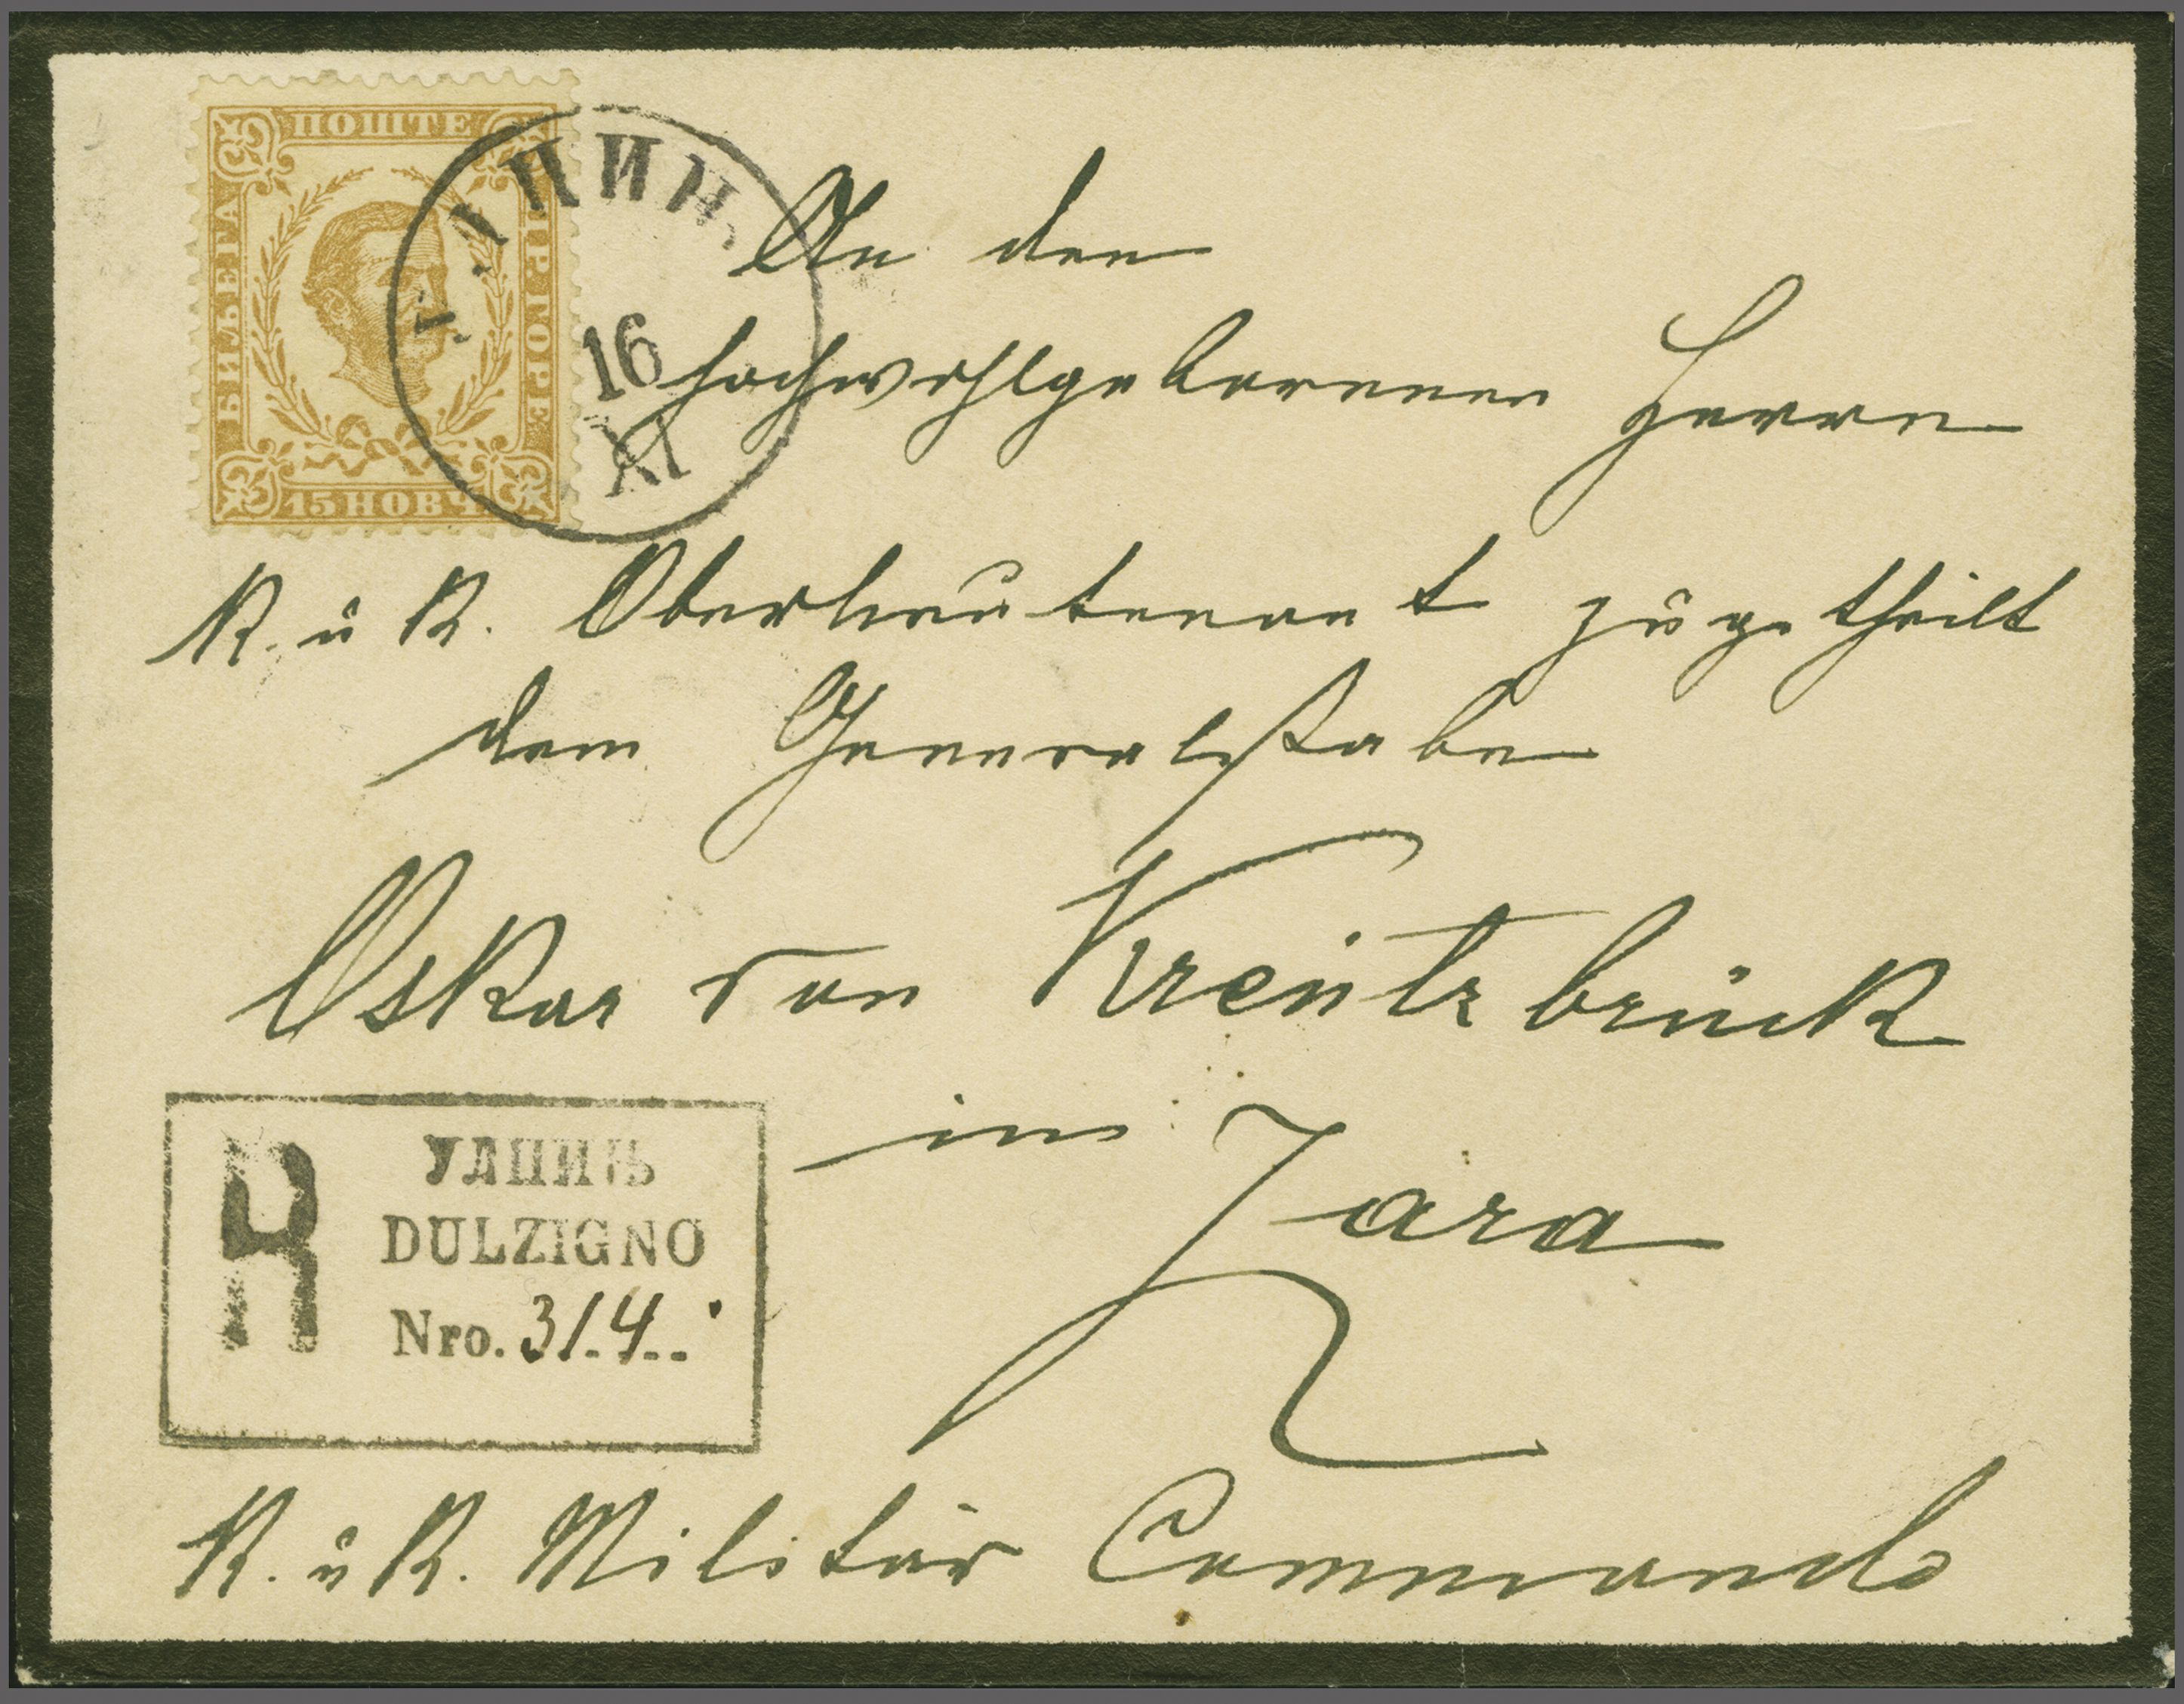 ПОШТЕ
БИЉЕГА
ЦР. ГОРЕ
15 НОВЧ.
16
XI
An den
hochwohlgeborenen Herrn
K. u K. Oberlieutenant zugetheilt
dem Generalstabe
Oskar von Kreutzbrück
in Zara
R
УЛЦИЊ
DULZIGNO
Nro. 314
K. u K. Militär Commando